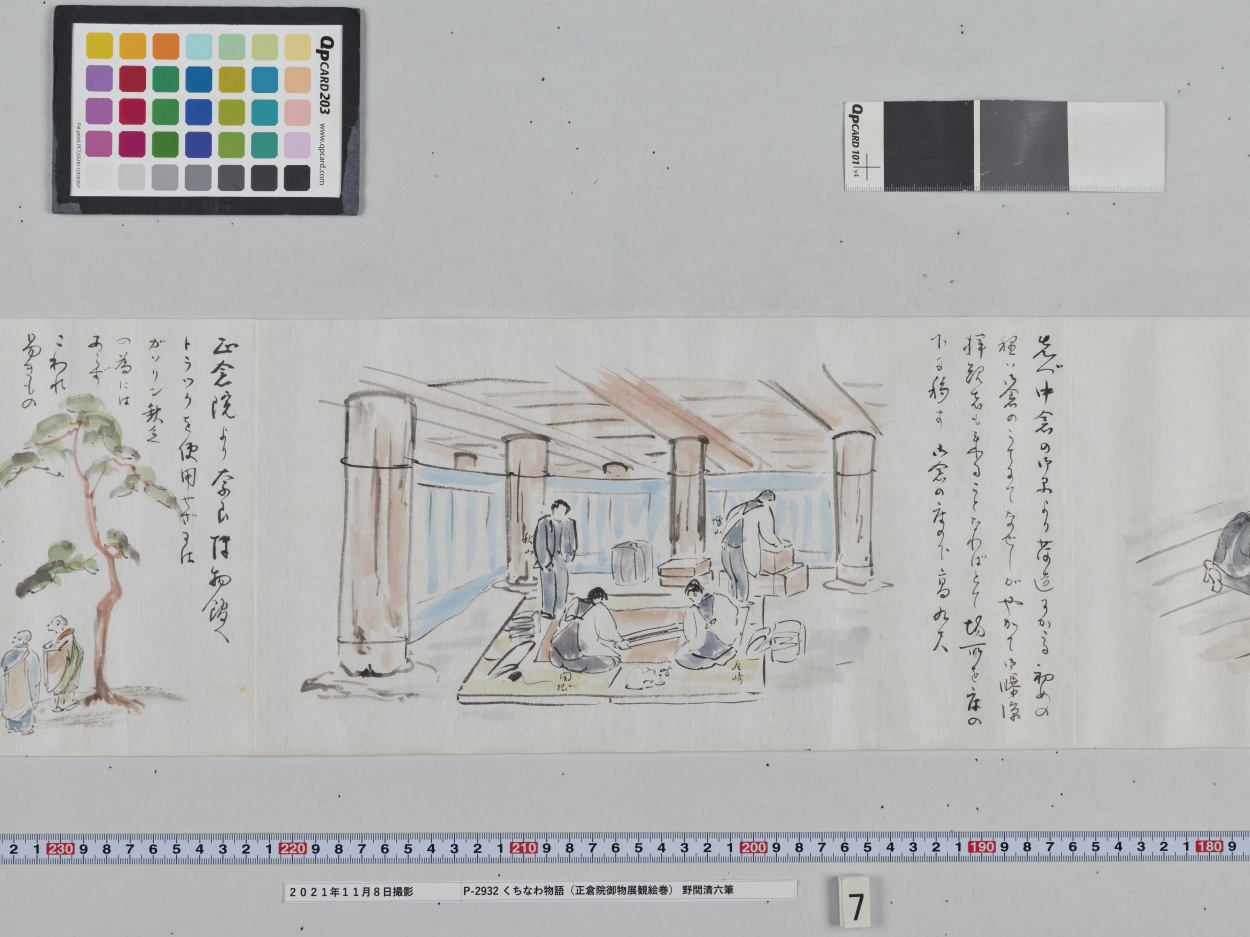 QpCARD 203
www.qpcard.com
QpCARD 101 v4
先づ中倉の
初めの
程は御倉の
が やがて御曝涼
拝観者も来ることなればとて場所を床の
下に移す 御倉の床下 高九尺
正倉院より奈良博物館へ
トラックを使用せざるは
ガソリン欠乏
の為には
あらず
こわれ
易きもの
2 1 230 9 8 7 6 5 4 3 2 1 220 9 8 7 6 5 4 3 2 1 210 9 8 7 6 5 4 3 2 1 200 9 8 7 6 5 4 3 2 1 190 9 8 7 6 5 4 3 2 1 180 9
2021年11月8日撮影
P-2932 くちなわ物語（正倉院御物展観絵巻） 野間清六筆
7